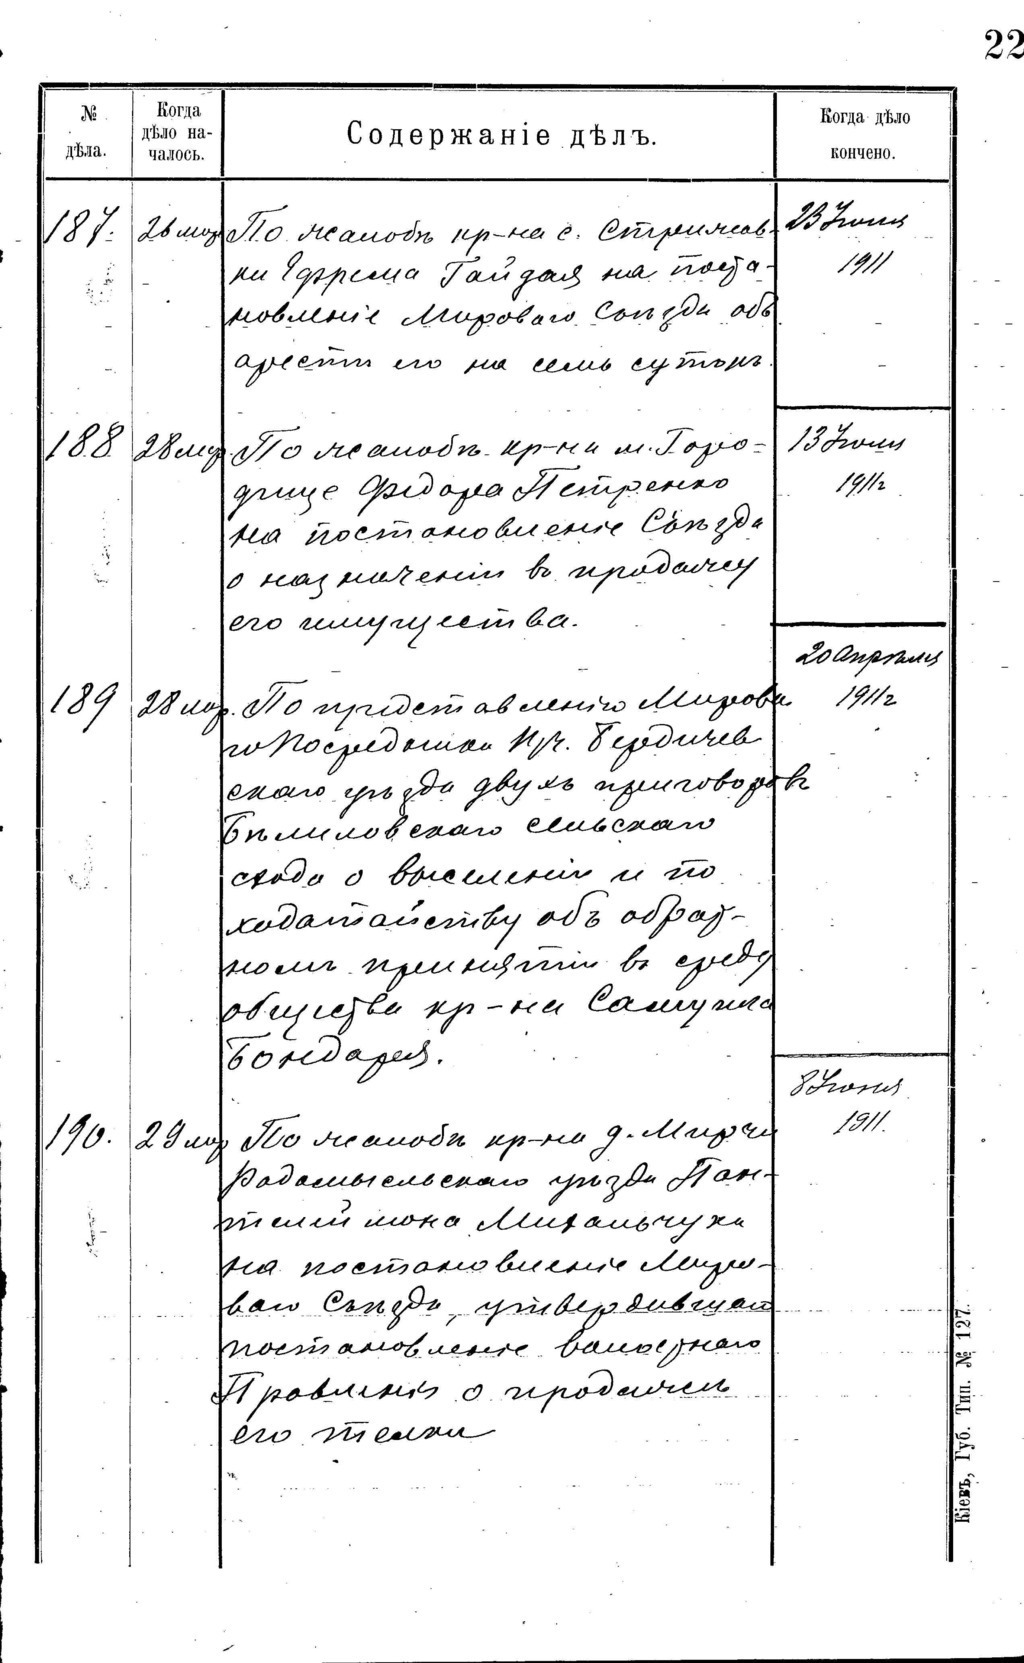 22
№ дѣла.
Когда дѣло на-чалось.
Содержаніе дѣлъ.
Когда дѣло кончено.
187. 26 мар По жалобѣ кр-на с. Стрижав- 23 Іюня
ки Ефрема Гайдая на поста- 1911
новленіе Мироваго Съѣзда объ
арестѣ его на семь сутокъ.
188 28 мар. По жалобѣ кр-на м. Горо- 13 Іюля
дище Федора Петренко 1911г
на постановленіе Съѣзда
о назначеніи въ продажу
его имущества.
20 Апрѣля
189 28 мар. По представленію Мирова 1911г
го Посредника уч. Бердичев
скаго уѣзда двухъ приговоровъ
Бѣлиловскаго сельскаго
схода о выселеніи и по
ходатайству объ обрат-
номъ принятіи въ среду
общества кр-на Самуила
Бондаря.
8 Іюня
190. 29 мар По жалобѣ кр-на д. Мирчи 1911.
Радомысльскаго уѣзда Пан-
телеймона Михальчука
на постановленіе Миро-
ваго Съѣзда, утвердившаго
постановленіе волостнаго
Правленія о продажѣ
его телки
Кіевъ, Губ. Тип. № 127.